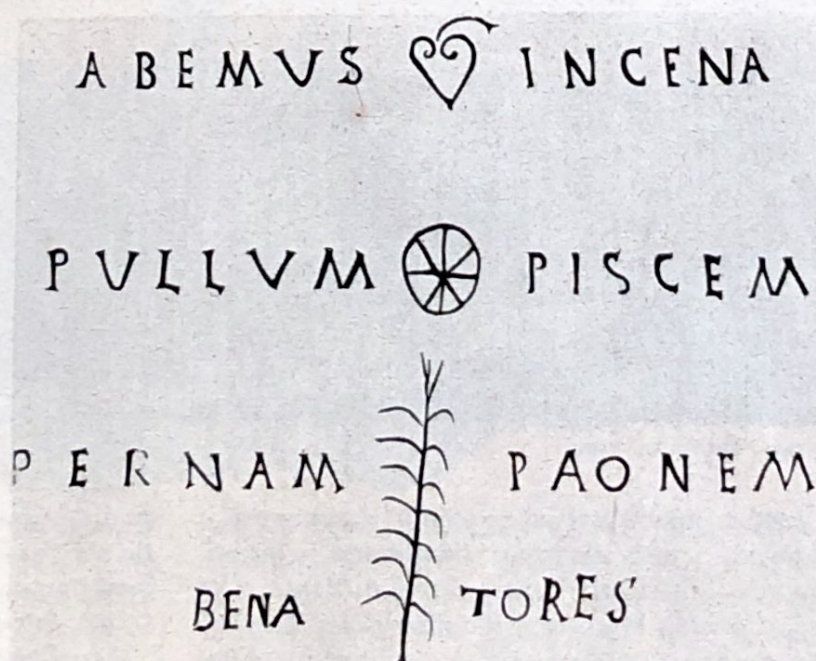 ABEMUS INCENA
PULLVM PISCEM
PERNAM PAONEM
BENA TORES